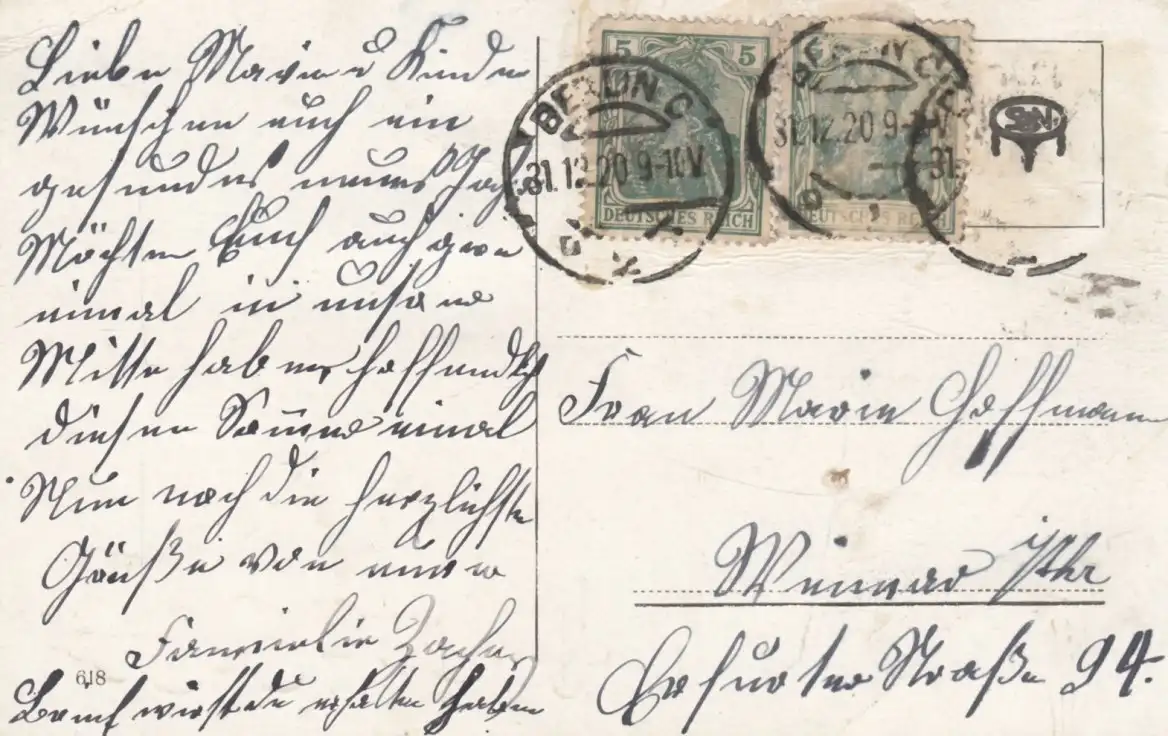 Liebe Marie u Kinder
Wünschen euch ein
gesundes neues Jahr
Möchten Euch auch gern
einmal in unsere
Mitte haben hoffendlich
diesen Sommer einmal
Nun noch die herzlichste
Grüße von eurer
Familie Zacher
Brief wirst du erhalten haben
618
5 5
DEUTSCHES REICH
DEUTSCHES REICH
BERLIN C
31.12.20 9-10V.
BERLIN C
31.12.20 9-10V
31.
Frau Marie Hoffmann
Weimar Thr
Erfurter Straße 94.